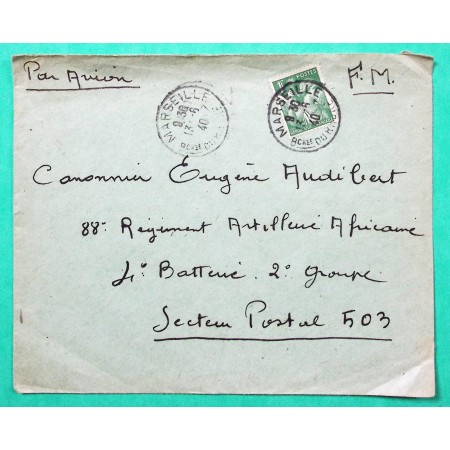 Par Avion
F.M.
MARSEILLE
9 30
13-6
40
BCHES DU R.
POSTES
MARSEILLE
9 30
40
BCHES DU R.
Canonnier Eugène Audibert
88e Régiment Artillerie Africaine
4e Batterie 2e Groupe
Secteur Postal 503